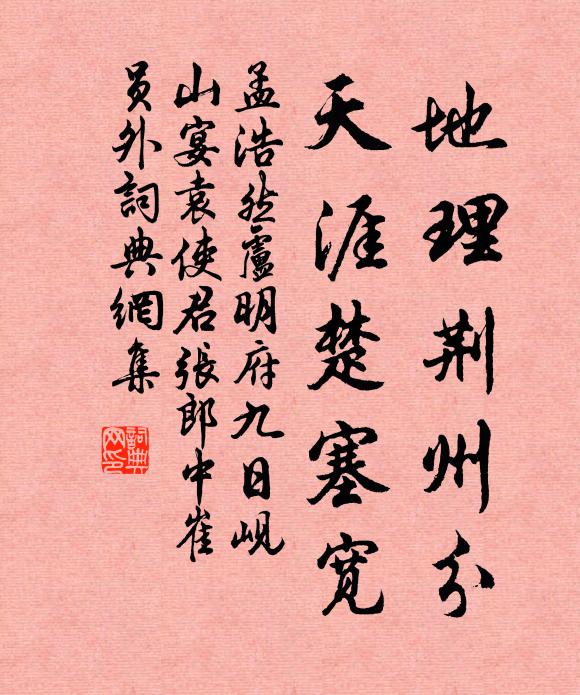 地理荆州分
天涯楚塞宽
孟浩然盧明府九日峴
山宴袁使君張郎中崔
員外詞典網集
詞典
网印